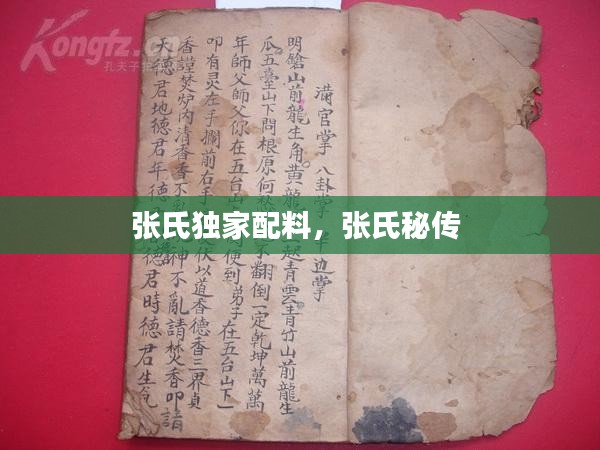 Kongfz.cn
孔夫子
滿官掌 八卦掌 边掌
明鎗山前龍生角黃龍 起青雲青竹山前龍生
瓜五臺山下問根原何 不翻倒一定乾坤萬萬
年師父師父你在五台山 便到弟子在五台山下一
叩有灵左手攔前右手 伏以道香德香三界貞
香 焚炉内清香香不 神不亂請焚香叩請
天徳君地徳君年徳 徳君時徳君生气
张氏独家配料，张氏秘传